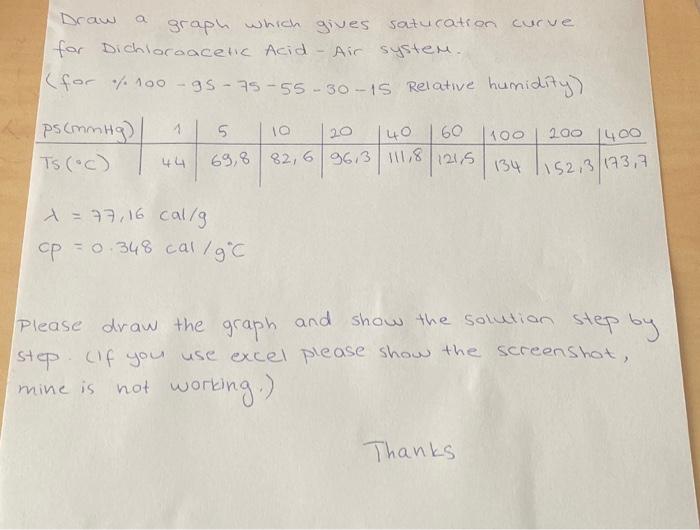 Draw a graph which gives saturation curve
for Dichloroacetic Acid - Air system.
(for % 100 - 95 - 75 - 55 - 30 - 15 Relative humidity)
Ps(mmHg) 1 5 10 20 40 60 100 200 400
Ts (°C) 44 69,8 82,6 96,3 111,8 121,5 134 152,3 173,7
λ = 77,16 cal/g
cp = 0.348 cal/g°C
Please draw the graph and show the solution step by
step. (If you use excel please show the screenshot,
mine is not working.)
Thanks